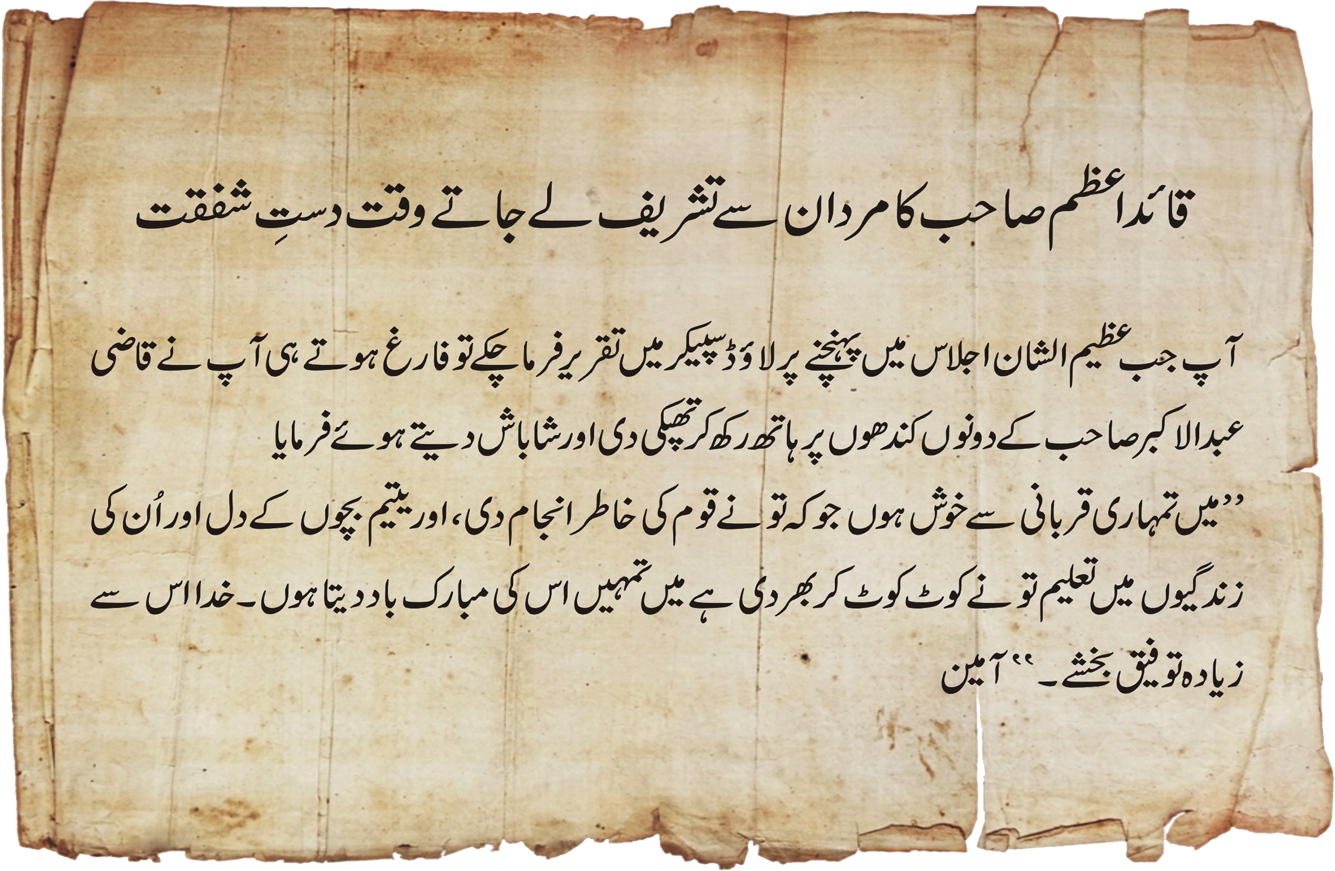 قائداعظم صاحب کا مردان سے تشریف لے جاتے وقت دستِ شفقت
آپ جب عظیم الشان اجلاس میں پہنچنے پر لاؤڈ سپیکر میں تقریر فرما چکے تو فارغ ہوتے ہی آپ نے قاضی
عبدالاکبر صاحب کے دونوں کندھوں پر ہاتھ رکھ کر تھپکی دی اور شاباش دیتے ہوئے فرمایا
”میں تمہاری قربانی سے خوش ہوں جو کہ تو نے قوم کی خاطر انجام دی، اور یتیم بچوں کے دل اور اُن کی
زندگیوں میں تعلیم تو نے کوٹ کوٹ کر بھر دی ہے میں تمہیں اس کی مبارک باد دیتا ہوں۔ خدا اس سے
زیادہ توفیق بخشے۔“ آمین